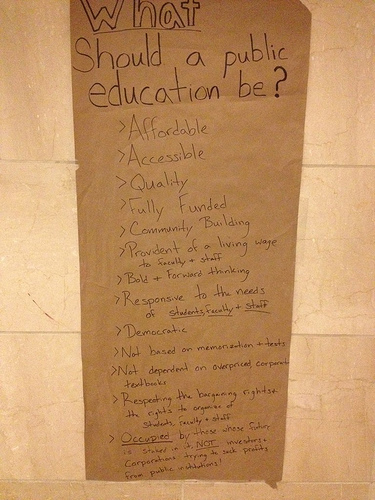 What
Should a public
education be?
> Affordable
> Accessible
> Quality
> Fully Funded
> Community Building
> Provident of a living wage
to faculty + staff
> Bold + Forward thinking
> Responsive to the needs
of students, faculty + staff
> Democratic
> Not based on memorization + tests
> Not dependent on overpriced, corporate
textbooks
> Respecting the bargaining rights +
the rights to organize of
students, faculty + staff
> Occupied by those whose future
is staked in it, NOT investors +
corporations trying to suck profits
from public institutions!